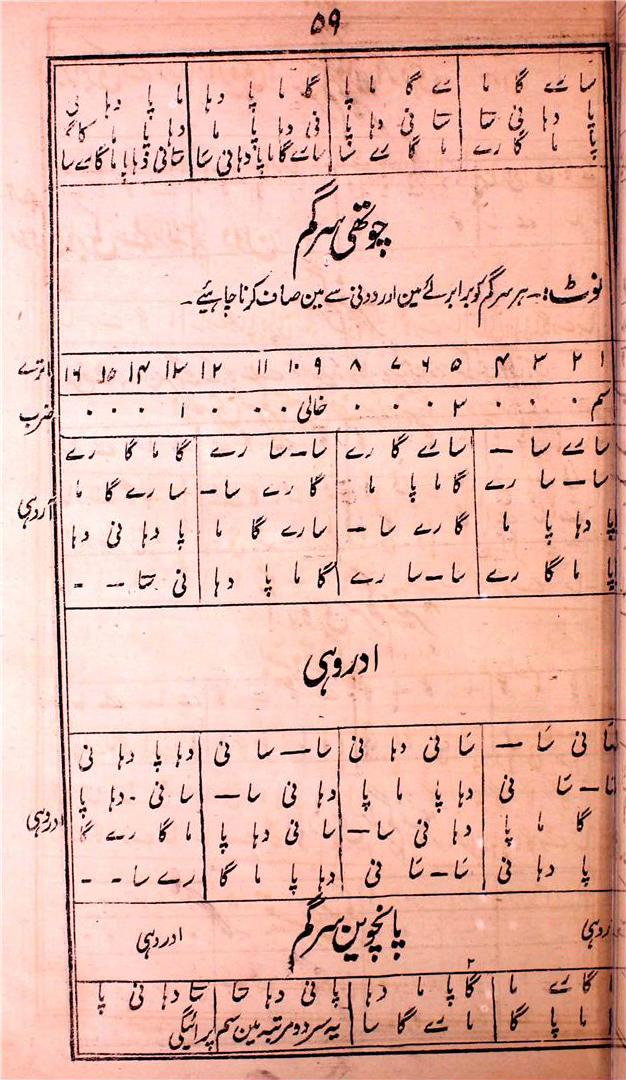 ۵۹
سا رے گا ما رے گا ما پا گا ما پا دہا ما پا دہا نی
پا دہا نی سا سا نی دہا پا نی دہا پا ما دہا پا ما گا
پا ما گا رے ما گا رے سا سارے گا ما پا دہا نی سا سا نی دہا پا ما گا رے سا
چوتھی سرگم
نوٹ:۔ ہر سرگم کو برابر لے مین اور دونی لے مین صاف کرنا چاہیئے۔
۱ ۲ ۳ ۴ ۵ ۶ ۷ ۸ ۹ ۱۰ ۱۱ ۱۲ ۱۳ ۱۴ ۱۵ ۱۶ ماترے
سم ۰ ۰ ۰ ۲ ۰ ۰ ۰ خالی ۰ ۰ ۰ ۱ ۰ ۰ ۰ ضرب
سا رے سا – سا رے گا رے سا – سا رے گا ما گا رے
سا – سا رے گا ما پا ما گا رے سا – سا رے گا ما
آروہی
پا دہا پا ما گا رے سا – سا رے گا ما پا دہا نی دہا
پا ما گا رے سا – سا رے گا ما پا دہا نی سا – -
ادروہی
سا نی سا – سا نی دہا نی سا – سا نی دہا پا دہا نی
سا – سا نی دہا پا ما پا دہا نی سا – سا نی دہا پا
ادروہی
گا ما پا دہا نی سا – سا نی دہا پا ما گا رے گا
پا دہا نی سا – سا نی دہا پا ما گا رے سا - -
پانچوین سرگم
ادروہی
گا رے ما گا پا ما دہا پا نی دہا سا سا دہا نی پا
ما پا گا ما رے گا سا یہ سر دو مرتبہ مین سم پر آئیگی